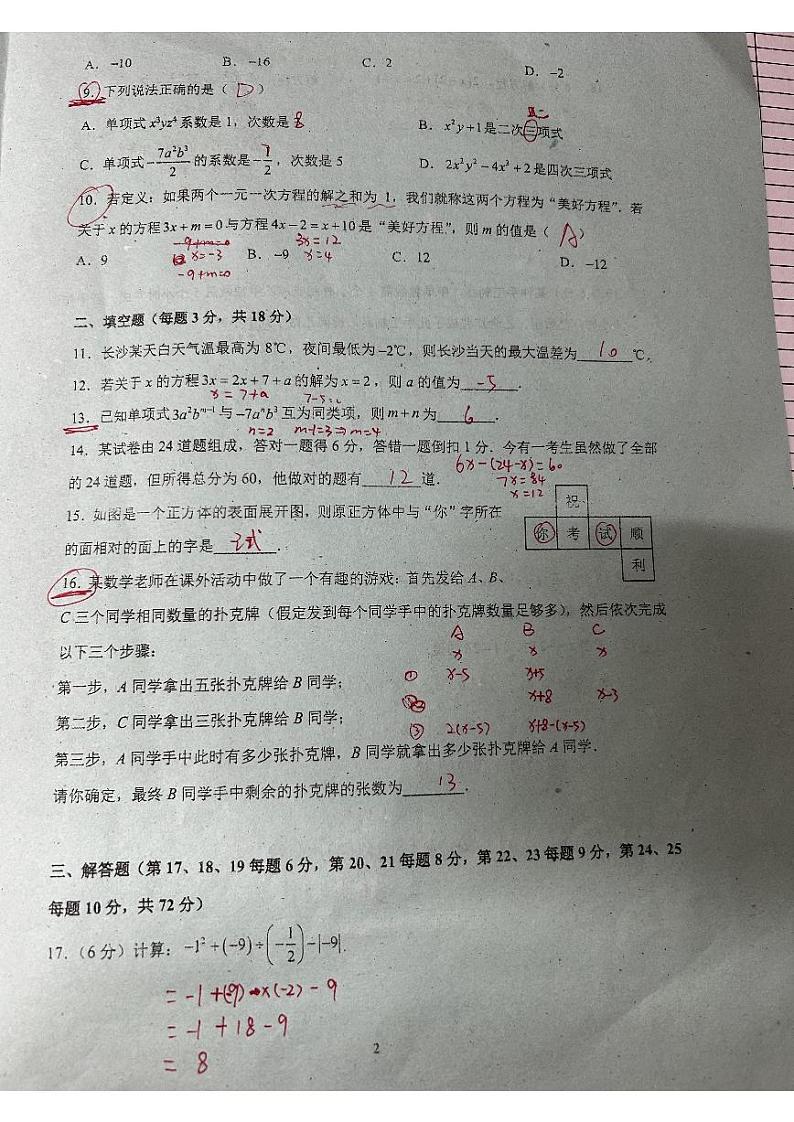 A. −10 B. −16 C. 2 D. −2
9. 下列说法正确的是（ D ）
二
A. 单项式x³yz⁴系数是1，次数是 8 B. x²y+1是二次三项式
C. 单项式−7a²b³/2的系数是−7/2，次数是5 D. 2x²y²−4x³+2是四次三项式
10. 若定义：如果两个一元一次方程的解之和为 1，我们就称这两个方程为“美好方程”. 若
关于x的方程3x+m=0与方程4x−2=x+10是“美好方程”，则m的值是（ A ）
−9+m=0 3x=12
A. 9 x=−3 B. −9 x=4 C. 12 D. −12
−9+m=0
二、填空题（每题3分，共18分）
11. 长沙某天白天气温最高为8℃，夜间最低为−2℃，则长沙当天的最大温差为 10 ℃.
12. 若关于x的方程3x=2x+7+a的解为x=2，则a的值为 −5 .
x=7+a 7−5=2
13. 已知单项式3a²bᵐ⁻¹与−7aⁿb³互为同类项，则m+n为 6 .
n=2 m−1=3⇒m=4
14. 某试卷由24道题组成，答对一题得6分，答错一题倒扣1分. 今有一考生虽然做了全部
6x−(24−x)=60
的24道题，但所得总分为60，他做对的题有 12 道.
7x=84
x=12
15. 如图是一个正方体的表面展开图，则原正方体中与“你”字所在
的面相对的面上的字是 试 .
祝
你 考 试 顺
利
16. 某数学老师在课外活动中做了一个有趣的游戏：首先发给A、B、
C三个同学相同数量的扑克牌（假定发到每个同学手中的扑克牌数量足够多），然后依次完成
以下三个步骤：
A B C
x x x
第一步，A同学拿出五张扑克牌给B同学；
① x−5 x+5
第二步，C同学拿出三张扑克牌给B同学；
② x+8 x−3
③ 2(x−5) x+8−(x−5)
第三步，A同学手中此时有多少张扑克牌，B同学就拿出多少张扑克牌给A同学.
请你确定，最终B同学手中剩余的扑克牌的张数为 13 .
三、解答题（第17、18、19每题6分，第20、21每题8分，第22、23每题9分，第24、25
每题10分，共72分）
17.（6分）计算：−1²+(−9)÷(−1/2)−|−9|.
=−1+(−9)×(−2)−9
=−1+18−9
=8
2